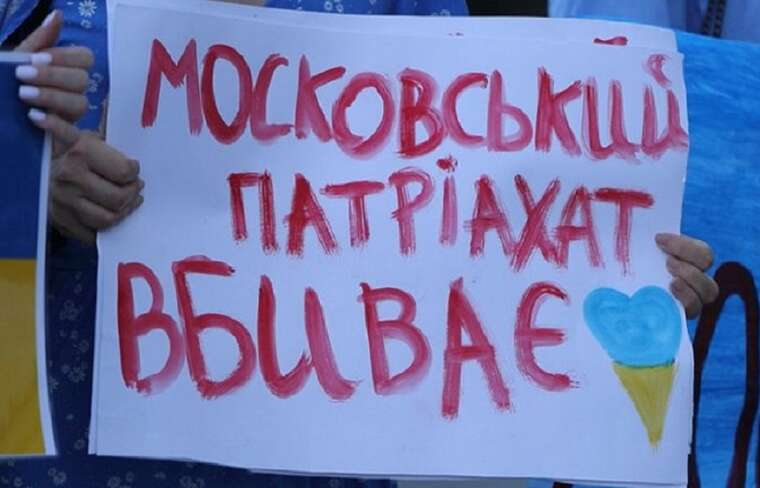 МОСКОВСЬКИЙ
ПАТРІАХАТ
ВБИВАЄ